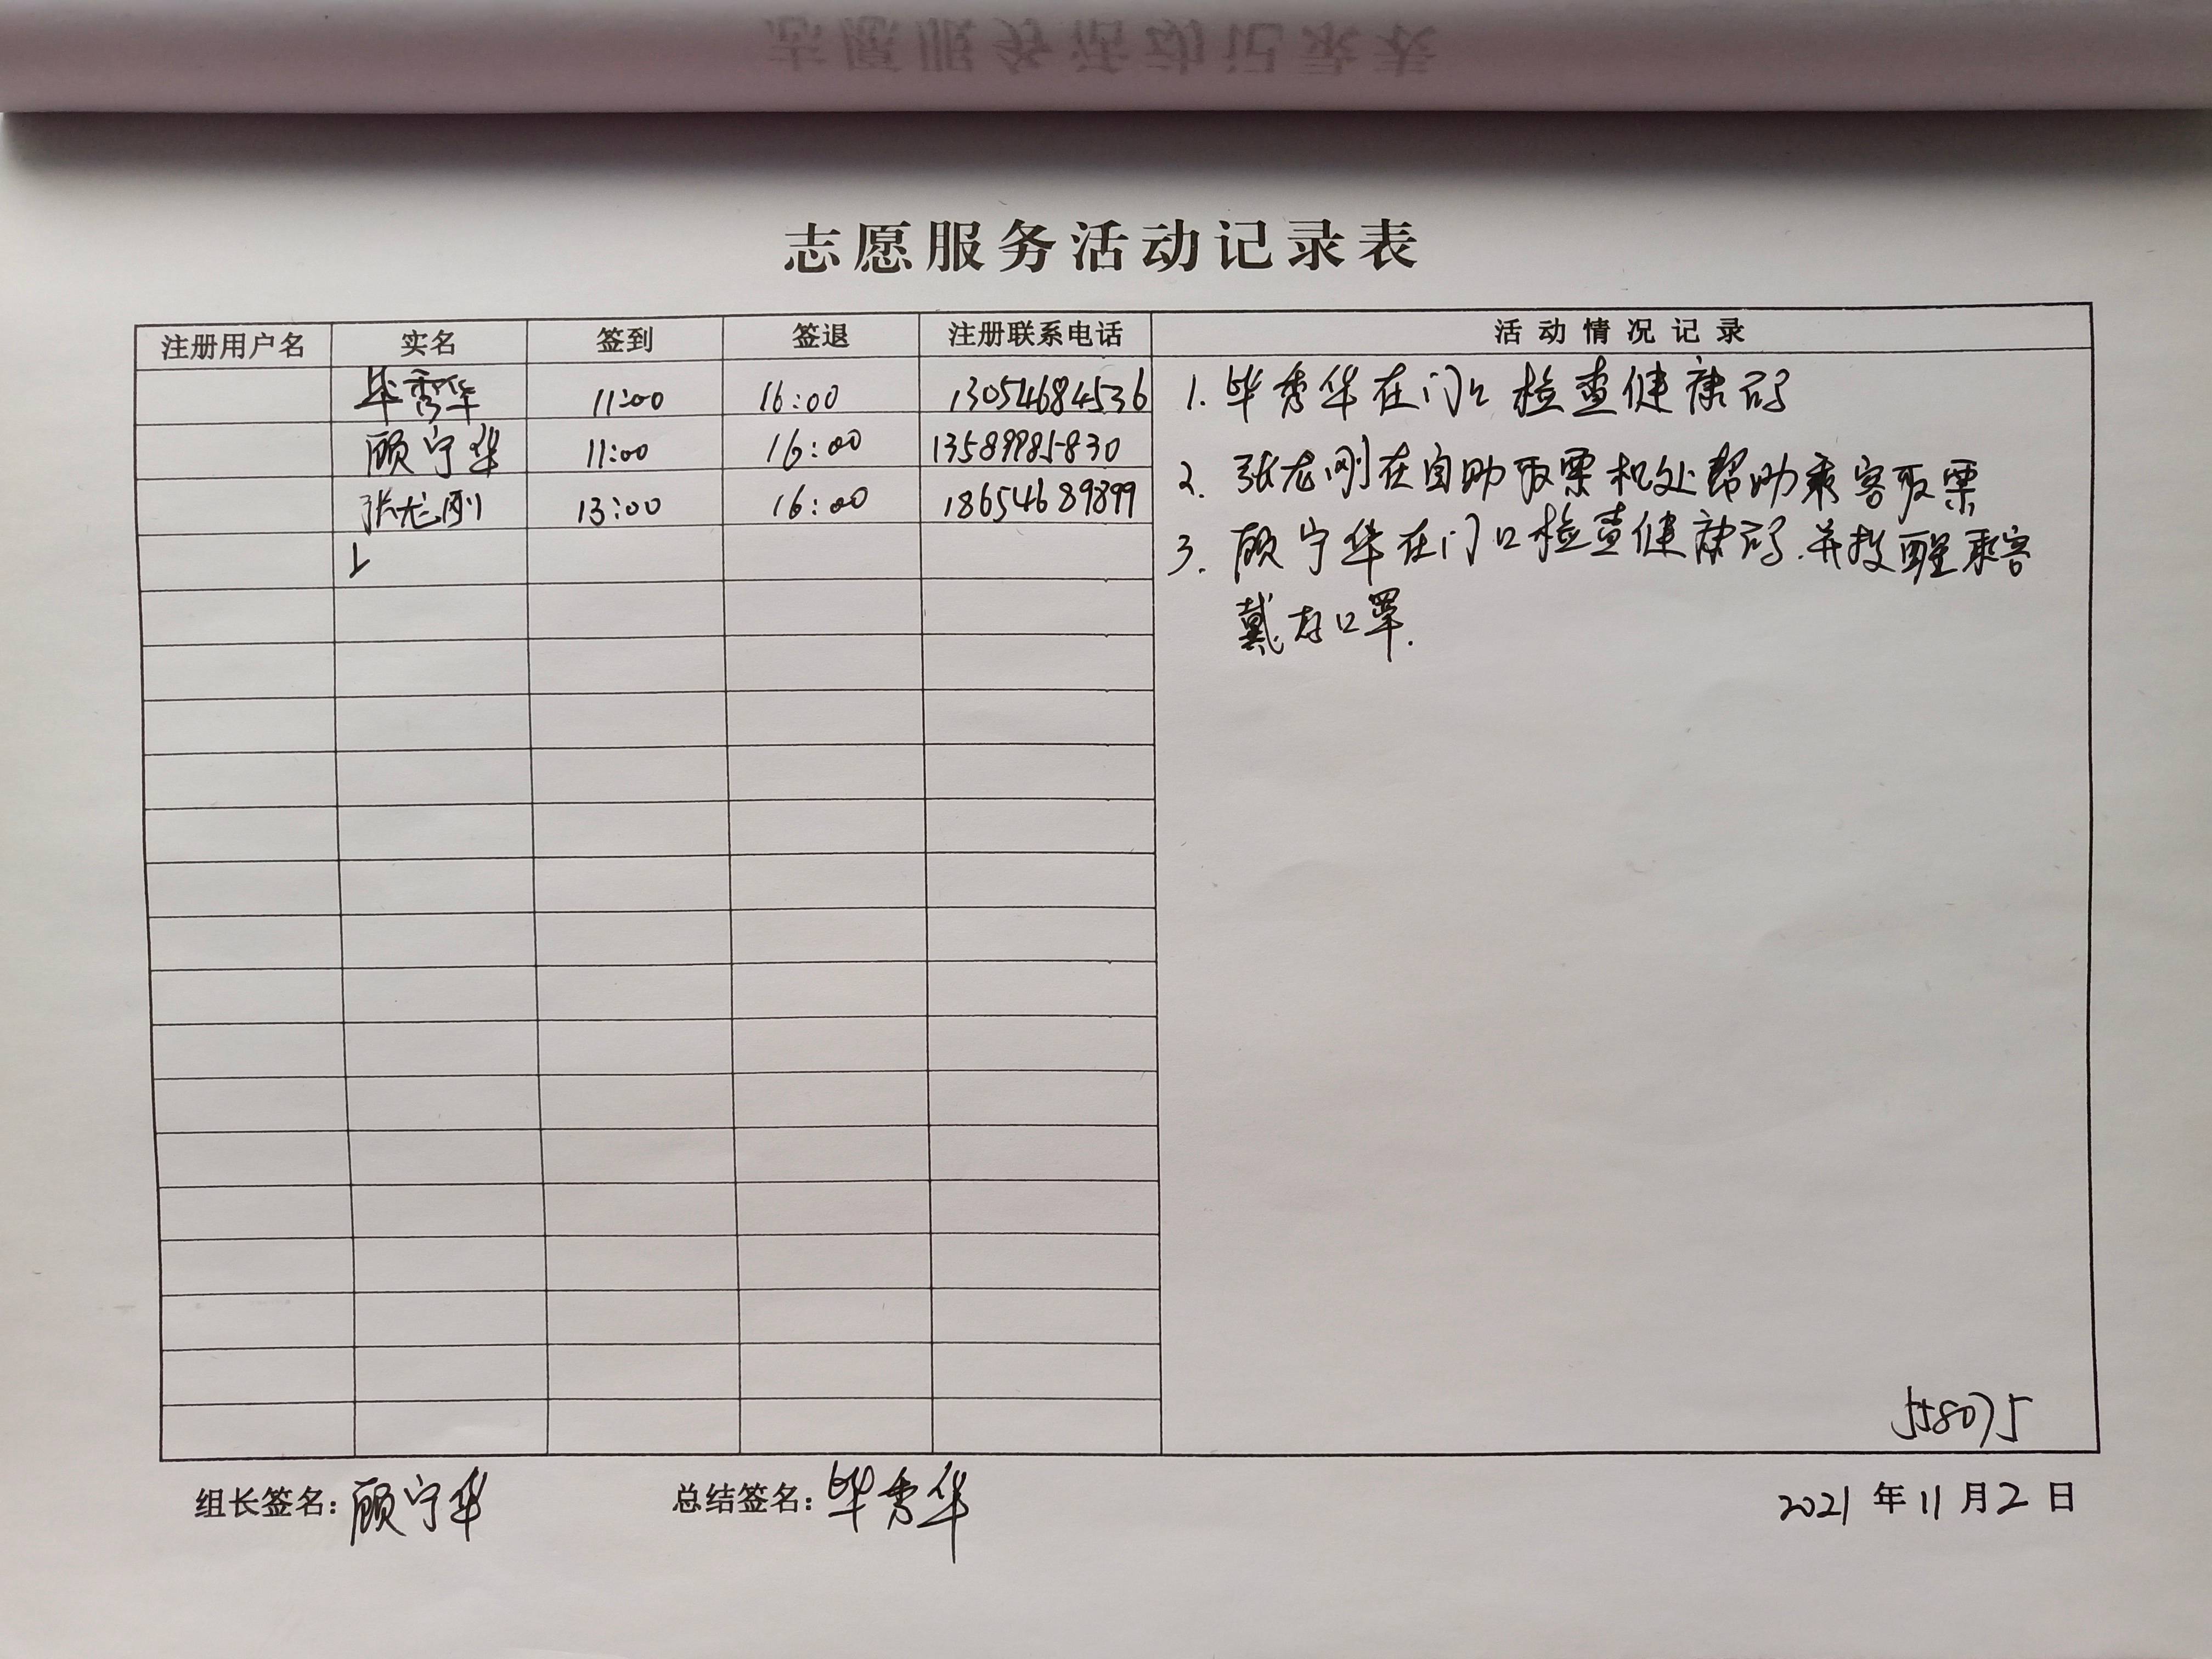 志愿服务活动记录表
注册用户名 实名 签到 签退 注册联系电话 活动情况记录
毕秀华 11:00 16:00 13054684536
顾宁华 11:00 16:00 13589985830
张龙刚 13:00 16:00 18654689899
1. 毕秀华在门口检查健康码
2. 张龙刚在自助取票机处帮助乘客取票
3. 顾宁华在门口检查健康码.并提醒乘客
戴好口罩.
组长签名: 顾宁华 总结签名: 毕秀华 2021年11月2日